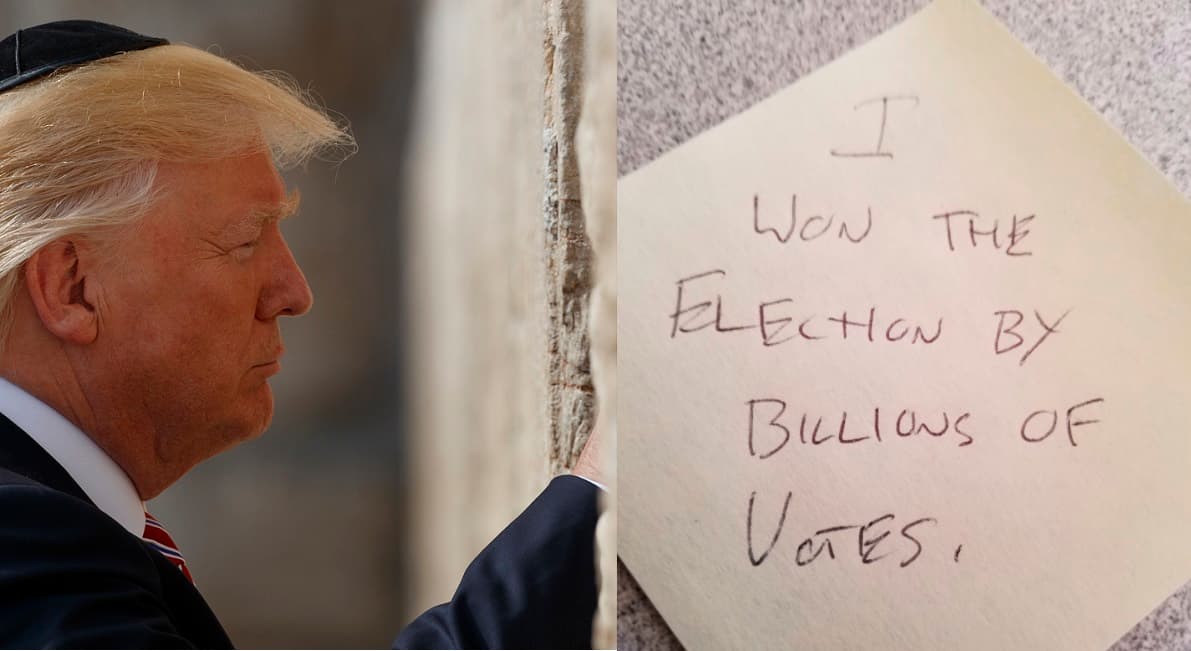 I
WON THE
ELECTION BY
BILLIONS OF
VOTES.